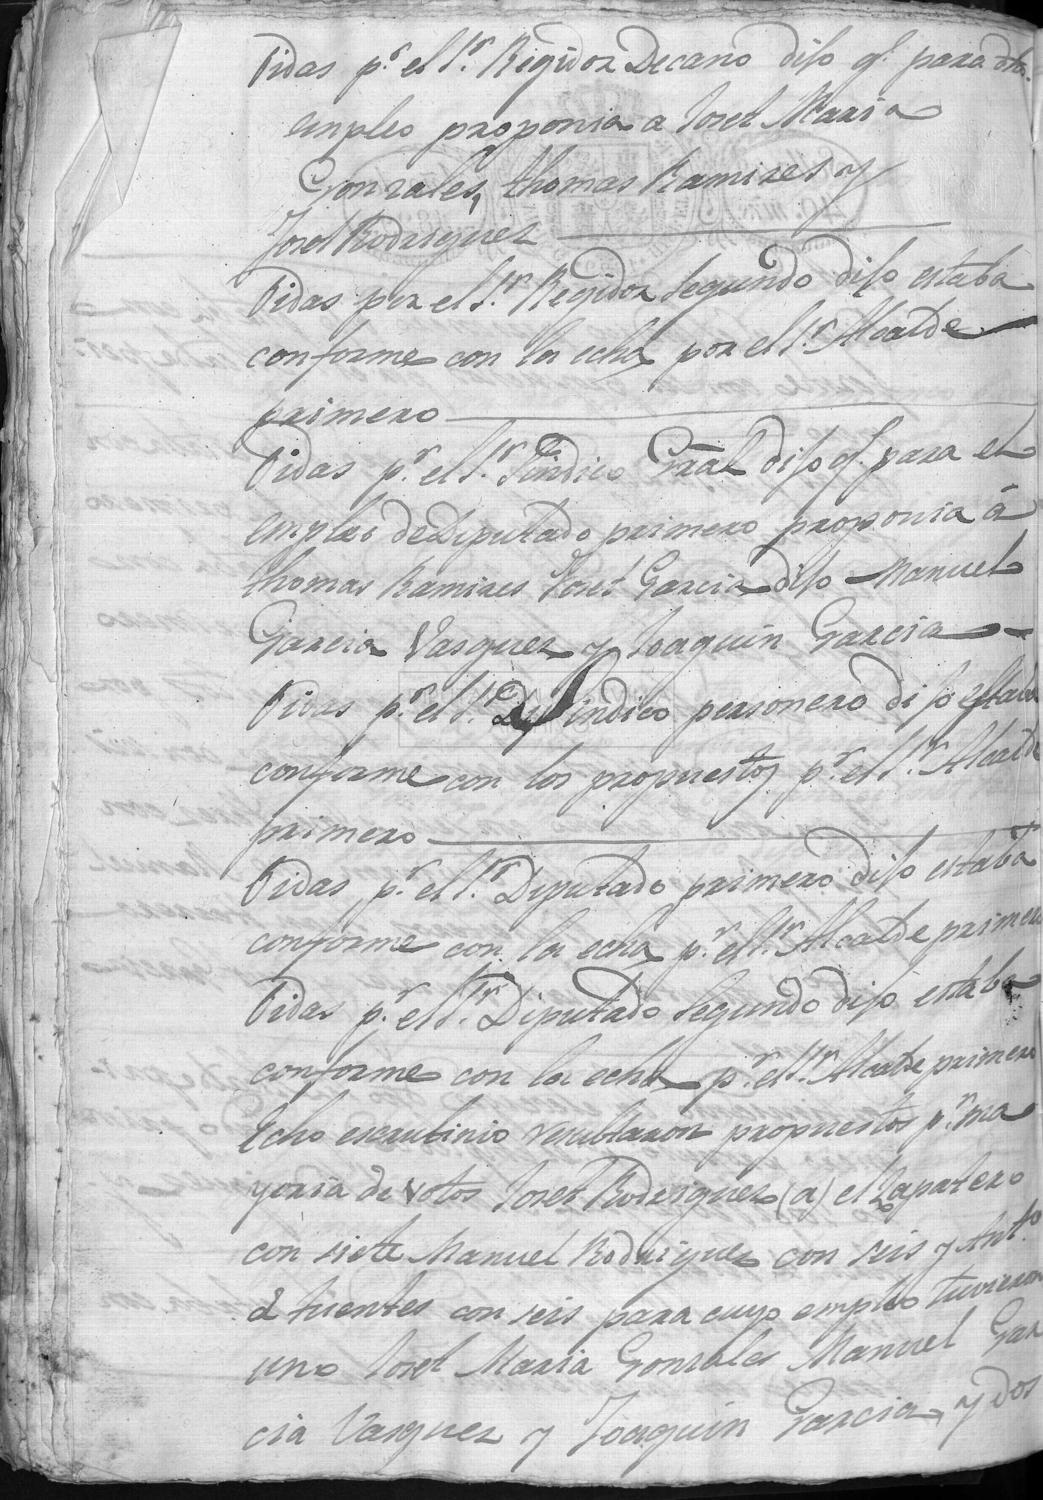 Oidas pr. el Sr. Regidor Decano dijo q. para dho.
empleo proponia a Josef Maria
Gonzales, thomas Ramires y
Josef Rodriguez
Oidas por el Sr. Regidor Segundo dijo estaba
conforme con la echa por el Sr. Alcalde
primero
Oidas pr. el Sr. Sindico Gral dijo q. para el
empleo de Diputado primero proponia á
thomas Ramires Josef Garcia dijo Manuel
Garcia Vasquez y Joaquin Garcia
Oidas pr. el Sr. Sindico personero dijo estaba
conforme con los propuestos pr. el Sr. Alcalde
primero
Oidas pr. el Sr. Diputado primero dijo estaba
conforme con la echa pr. el Sr. Alcalde primero
Oidas pr. el Sr. Diputado Segundo dijo estaba
conforme con la echa pr. el Sr. Alcalde primero
Echo escrutinio resultaron propuestos pr. ma
yoria de votos Josef Rodriguez (a) el Zapatero
con siete Manuel Rodriguez con seis y Anto.
d fuentes con seis para cuyo empleo tuvieron
uno Josef Maria Gonzales Manuel Gar
cia Vasquez y Joaquin Garcia, y dos